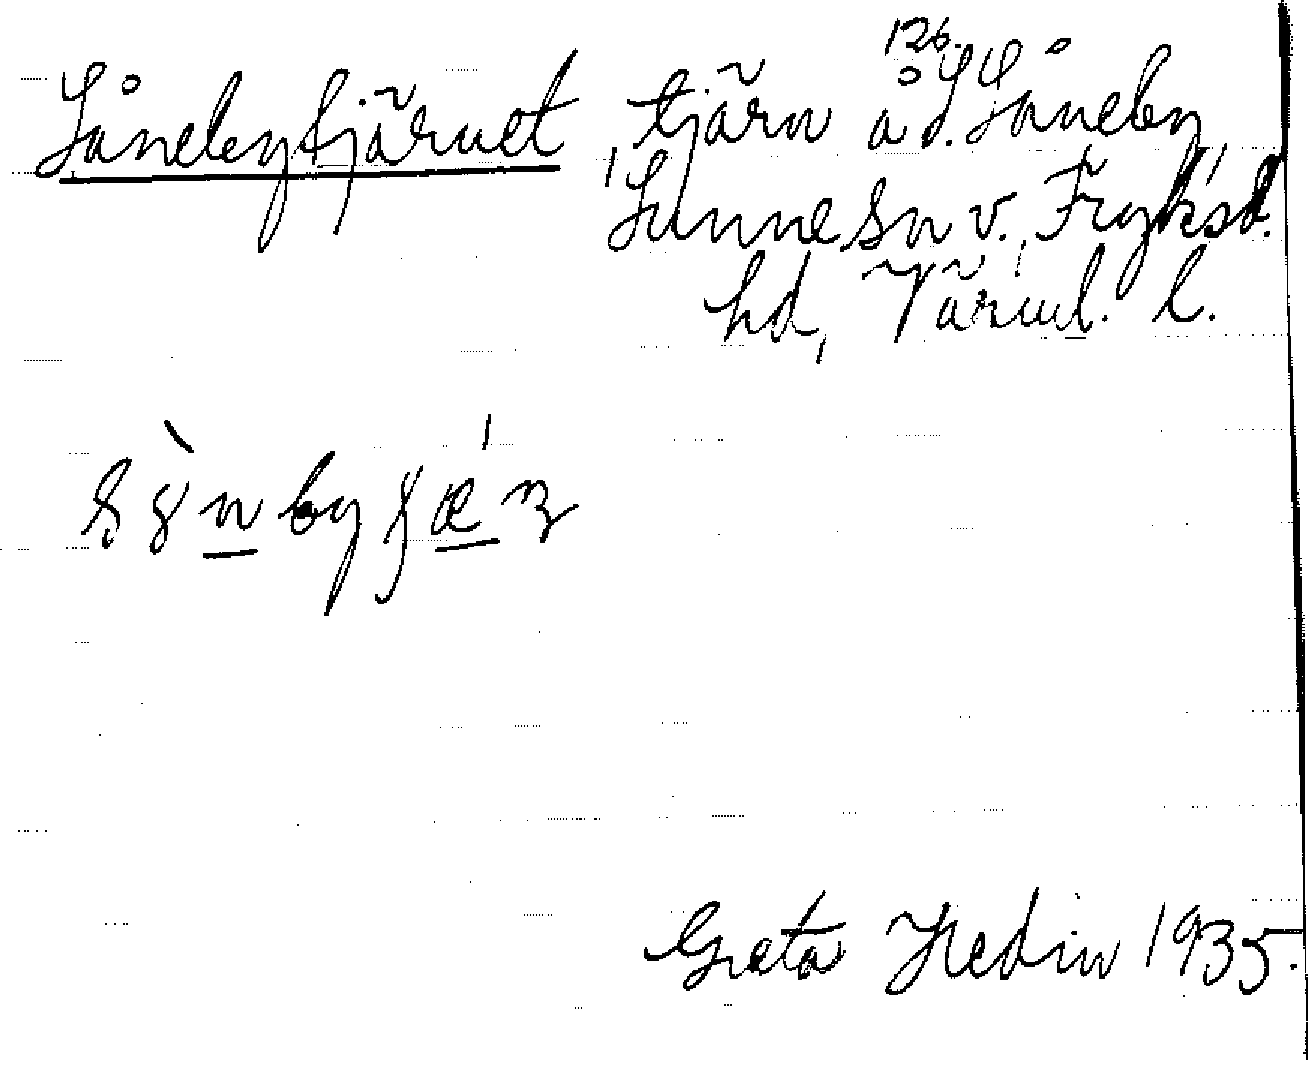 126.
Sånebytjärnet tjärn å S. Såneby,
Sunne sn v. Fryksd.
hd, Värml. l.
Greta Hedin 1935.